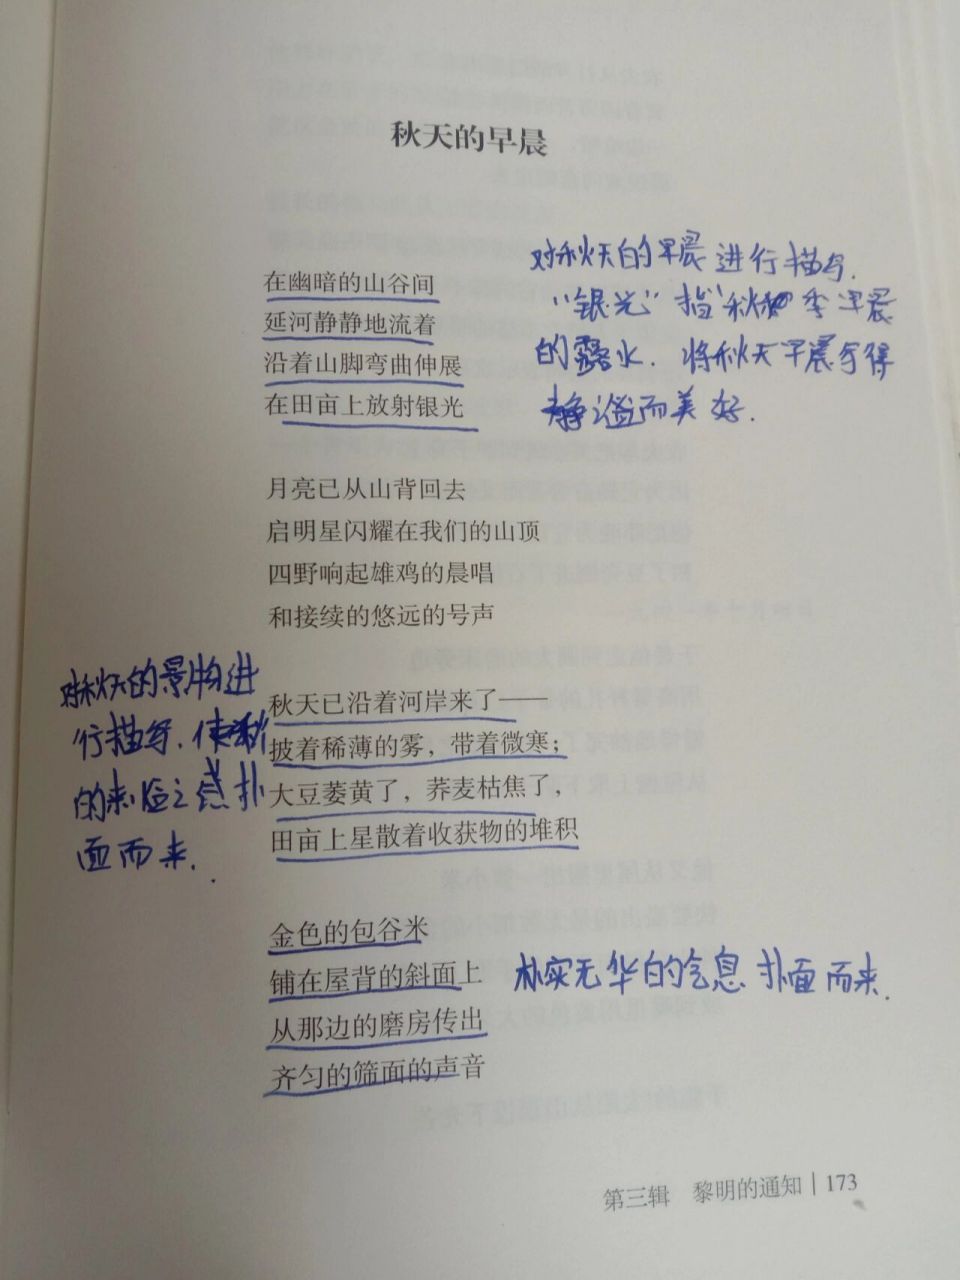 秋天的早晨
在幽暗的山谷间
延河静静地流着
沿着山脚弯曲伸展
在田亩上放射银光
对秋天的早晨进行描写.
“银光”指秋季早晨
的露水.将秋天早晨写得
静谧而美好.
月亮已从山背回去
启明星闪耀在我们的山顶
四野响起雄鸡的晨唱
和接续的悠远的号声
秋天已沿着河岸来了
披着稀薄的雾，带着微寒；
大豆萎黄了，荞麦枯焦了，
田亩上星散着收获物的堆积
对秋天的景物进
行描写.使秋
的来临之感扑
面而来.
金色的包谷米
铺在屋背的斜面上
从那边的磨房传出
齐匀的筛面的声音
朴实无华的气息扑面而来.
第三辑 黎明的通知 | 173